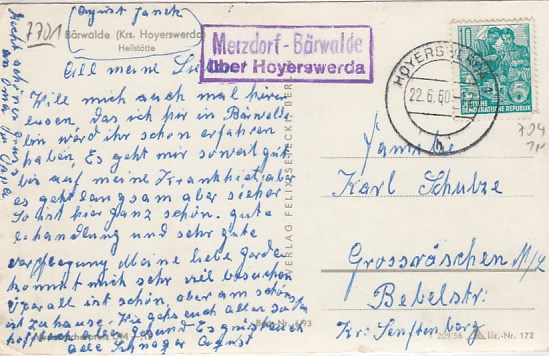 7701
(August Janek)
Bärwalde (Krs. Hoyerswerda)
Heilstätte
Merzdorf-Bärwalde
über Hoyerswerda
HOYERSWERDA 1
22.6.60
10
DEUTSCHE
DEMOKRATISCHE REPUBLIK
All meine Lieben
Will mich auch mal hören
lassen. Das ich hir in Bärwalde
bin wird ihr schon erfahren
haben. Es geht mir soweit gut
bis auf meine Krankheit, aber
es geht langsam aber sicher
So ist hier ganz schön. gute
Behandlung und sehr gute
Verpflegung Meine liebe Gerda
kommt mich sehr viel besuchen
Überall ist schön, aber am schönsten
ist zuhause. Wie gehts euch allen so
hoffe alle Gesund. Es grüsst
alle Schwager August
VERLAG FELIX SETECKI, BER
Familie
Karl Schulze
Grossräschen N/L
Bebelstr.
Kr. Senftenberg
209 56
Liz.-Nr. 172